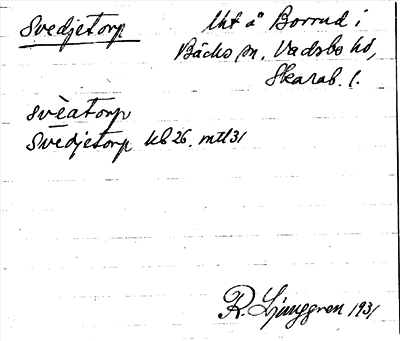 Svedjetorp
Lht å Borrud i
Bäcks sn, Vadsbo hd,
Skarab. l.
svèatorp
Svedjetorp kb 26. mtl 31
R. Ljunggren 1931